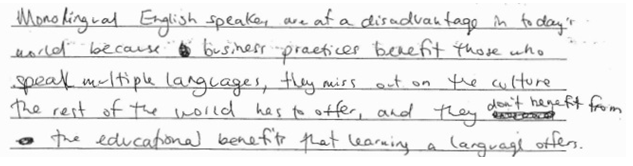 Monolingual English speaker are at a disadvantage in today's
world because business practices benefit those who
speak multiple languages, they miss out on the culture
the rest of the world has to offer, and they don't benefit from
the educational benefits that learning a language offers.